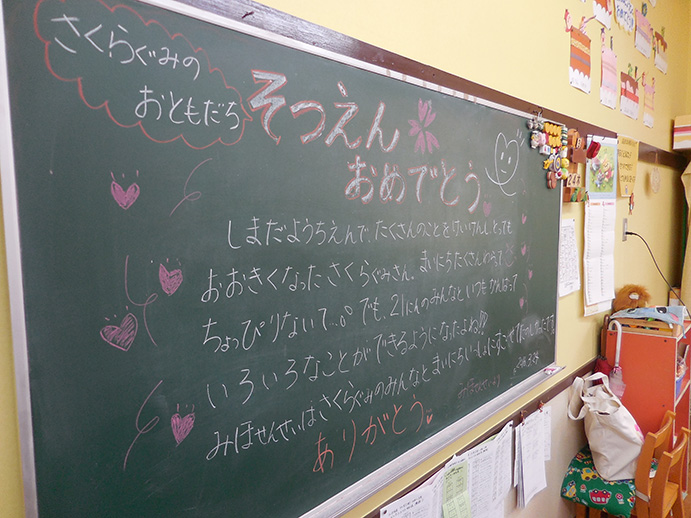 さくらぐみの
おともだち
そつえん
おめでとう
しまだようちえんで、たくさんのことをけいけんし、とっても
おおきくなったさくらぐみさん。まいにちたくさんわらって
ちょっぴりないて…。でも、21にんのみんなといつもがんばって
いろいろなことができるようになったよね!!
みほせんせいはさくらぐみのみんなとまいにちいっしょにすごせて
ありがとう
みほせんせいより